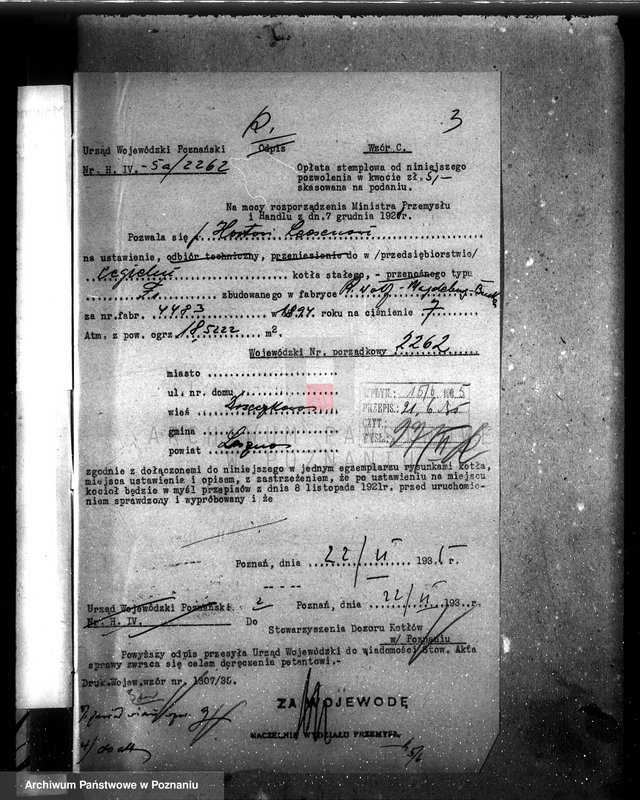 3
Urząd Wojewódzki Poznański
Odpis
Wzór C.
Nr. H. IV. -5a/2262
Opłata stemplowa od niniejszego
pozwolenia w kwocie zł. 5,-
skasowana na podaniu.
Na mocy rozporządzenia Ministra Przemysłu
i Handlu z dn. 7 grudnia 1921r.
Pozwala się p.
na ustawienie, odbiór techniczny, przeniesienie do w /przedsiębiorstwie/
cegielni kotła stałego, - przenośnego typu
zbudowanego w fabryce R. Wolf - Magdeburg
za nr.fabr. 4483 w 1894 roku na ciśnienie 7
Atm. z pow. ogrz. 18,5 m².
Wojewódzki Nr. porządkowy 2262
miasto
ul. nr. domu
wieś
gmina
powiat
WPŁYN.: 15/6 5
PRZEPIS.: 21.6
CZYT.:
WYSŁ.:
zgodnie z dołączonemi do niniejszego w jednym egzemplarzu rysunkami kotła,
miejsca ustawienie i opisem, z zastrzeżeniem, że po ustawieniu na miejscu
kocioł będzie w myśl przepisów z dnia 8 listopada 1921r. przed uruchomie-
niem sprawdzony i wypróbowany i że
Poznań, dnia 22/VI 1935r.
Urząd Wojewódzki Poznański. Poznań, dnia 22/VI 193 r.
Nr. H. IV. Do
Stowarzyszenia Dozoru Kotłów
w/ Poznaniu
Powyższy odpis przesyła Urząd Wojewódzki do wiadomości Stow. Akta
sprawy zwraca się celem doręczenia petentowi.-
Druk.Wojew.wzór nr. 1307/35.
ZA WOJEWODĘ
NACZELNIK WYDZIAŁU PRZEMYSŁ.
Archiwum Państwowe w Poznaniu